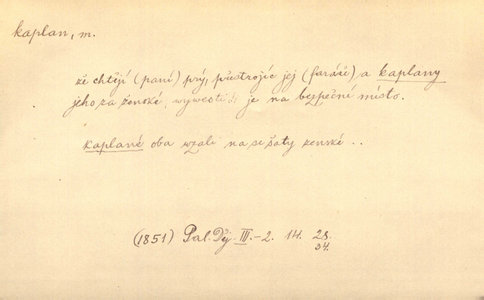 kaplan, m.
že chtějí (paní) prý, přistrojíc jej (faráře) a kaplany
jeho za ženské, vyvesti je na bezpečné místo.
kaplané oba vzali na se šaty ženské . .
(1851) Pal. Děj. III.-2. 14. 28.
34.